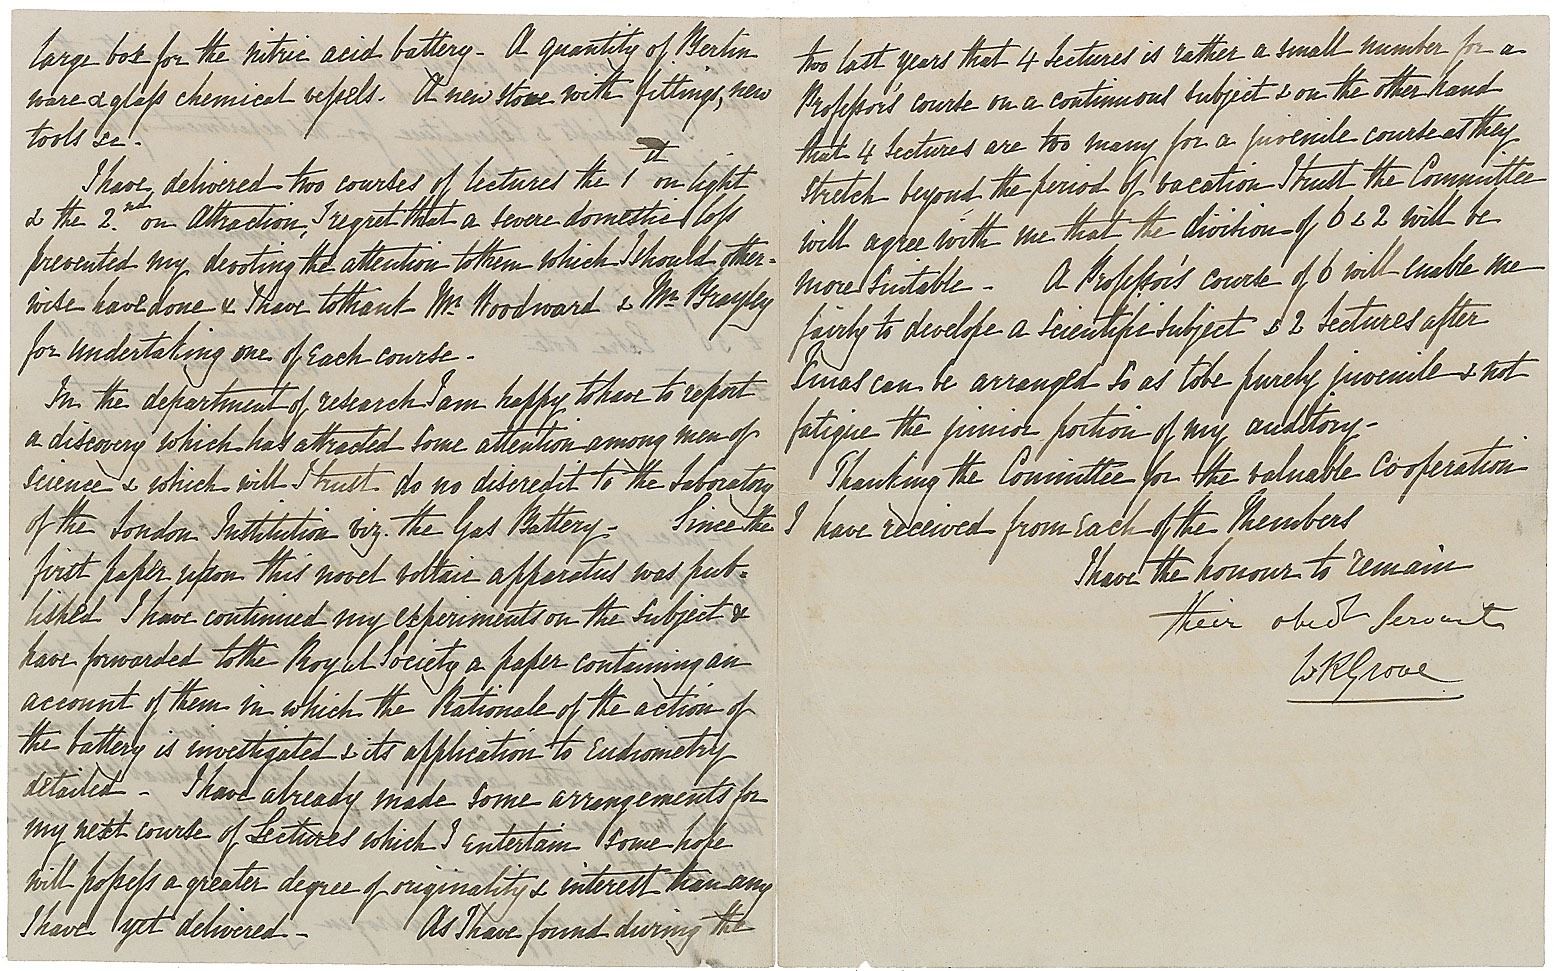 large box for the nitric acid battery - A quantity of Berlin
ware & glass chemical vessels. A new stove with fittings, new
tools &c -
I have delivered two courses of lectures the 1st on light
& the 2.nd on Attraction, I regret that a severe domestic loss
prevented my devoting the attention to them which I should other-
wise have done & I have to thank Mr Woodward & Mr Brayley
for undertaking one of each course -
In the department of research I am happy to have to report
a discovery which has attracted some attention among men of
science & which will I trust do no discredit to the Laboratory
of the London Institution viz. the Gas Battery - Since the
first paper upon this novel voltaic apparatus was pub-
lished I have continued my experiments on the subject &
have forwarded to the Royal Society a paper containing an
account of them in which the Rationale of the action of
the battery is investigated & its application to Eudiometry
detailed - I have already made some arrangements for
my next course of Lectures which I entertain some hope
will possess a greater degree of originality & interest than any
I have yet delivered - As I have found during the
two last years that 4 Lectures is rather a small number for a
Professor's course on a continuous subject & on the other hand
that 4 Lectures are too many for a juvenile course as they
stretch beyond the period of vacation I trust the Committee
will agree with me that the division of 6 & 2 will be
more suitable - A Professor's course of 6 will enable me
fairly to develope a scientific subject & 2 Lectures after
Xmas can be arranged so as to be purely juvenile & not
fatigue the junior portion of my auditory -
Thanking the Committee for the valuable co-operation
I have received from each of the Members
I have the honour to remain
their obedt Servant
W R Grove